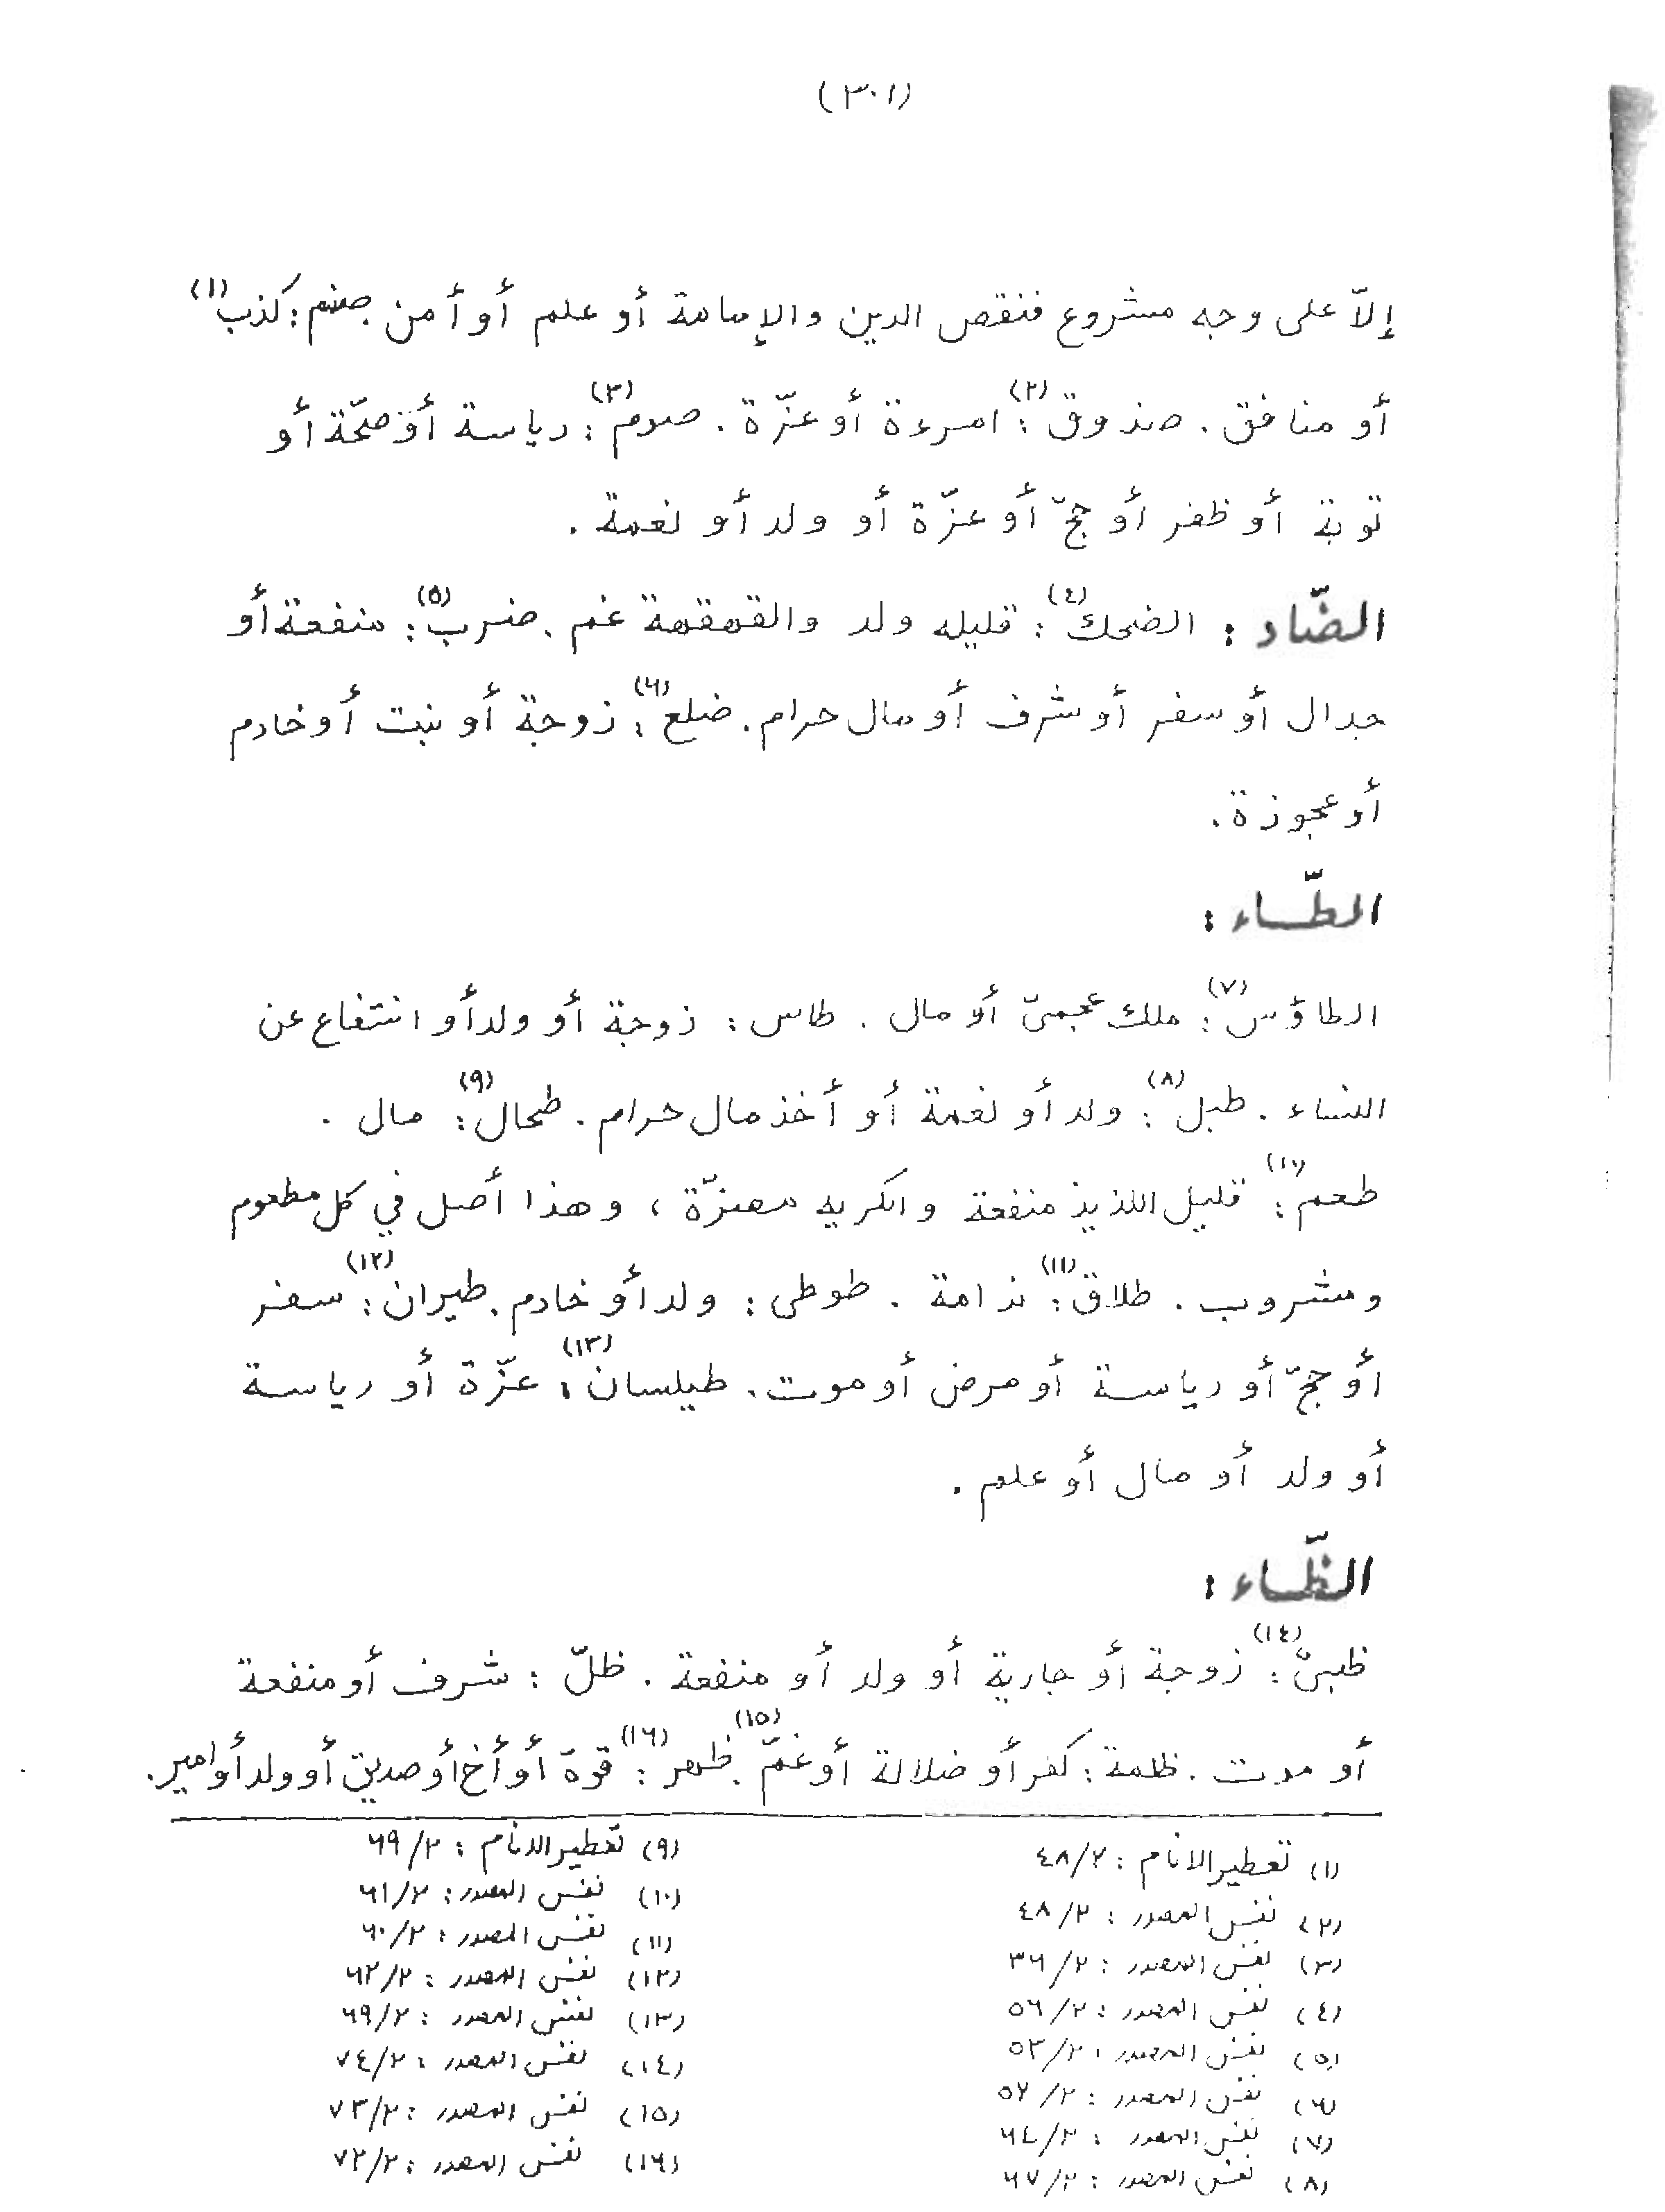 (٣٠١)
إلاّ على وجه مشروع فنقص الدين والإمامة أو علم أو أمن. صنم: كذب(١)
أو منافق. صندوق(٢): امرءة أو عزّة. صوم(٣): رياسة أو صحّة أو
توبة أو ظفر أو حجّ أو عزّة أو ولد أو نعمة.
الضّاد: الضحك(٤): قليله ولد والقهقهة غم. ضرب(٥): منفعة أو
جدال أو سفر أو شرف أو مال حرام. ضلع(٦): زوجة أو بنت أو خادم
أو عجوزة.
الطّاء:
الطاؤس(٧): ملك عجميّ أو مال. طاس: زوجة أو ولد أو انتفاع عن
النساء. طبل(٨): ولد أو نعمة أو أخذ مال حرام. طحال(٩): مال.
طعم(١٠): قليل اللذيذ منفعة والكريه مضرّة، وهذا أصل في كل مطعوم
ومشروب. طلاق(١١): ندامة. طوطى: ولد أو خادم. طيران(١٢): سفر
أو حجّ أو رياسة أو مرض أو موت. طيلسان(١٣): عزّة أو رياسة
أو ولد أو مال أو علم.
الظّاء:
ظبىّ(١٤): زوجة أو جارية أو ولد أو منفعة. ظلّ: شرف أو منفعة
أو موت. ظلمة: كفر أو ضلالة أو غمّ(١٥). ظهر(١٦): قوّة أو أخ أو صديق أو ولد أو امير.
(١) تعطير الانام: ٤٨/٢
(٢) نفس المصدر: ٤٨/٢
(٣) نفس المصدر: ٣٦/٢
(٤) نفس المصدر: ٥٦/٢
(٥) نفس المصدر: ٥٣/٢
(٦) نفس المصدر: ٥٧/٢
(٧) نفس المصدر: ٦٤/٢
(٨) نفس المصدر: ٦٧/٢
(٩) تعطير الانام: ٦٩/٢
(١٠) نفس المصدر: ٦١/٢
(١١) نفس المصدر: ٦٠/٢
(١٢) نفس المصدر: ٦٢/٢
(١٣) نفس المصدر: ٦٩/٢
(١٤) نفس المصدر: ٧٤/٢
(١٥) نفس المصدر: ٧٣/٢
(١٦) نفس المصدر: ٧٢/٢